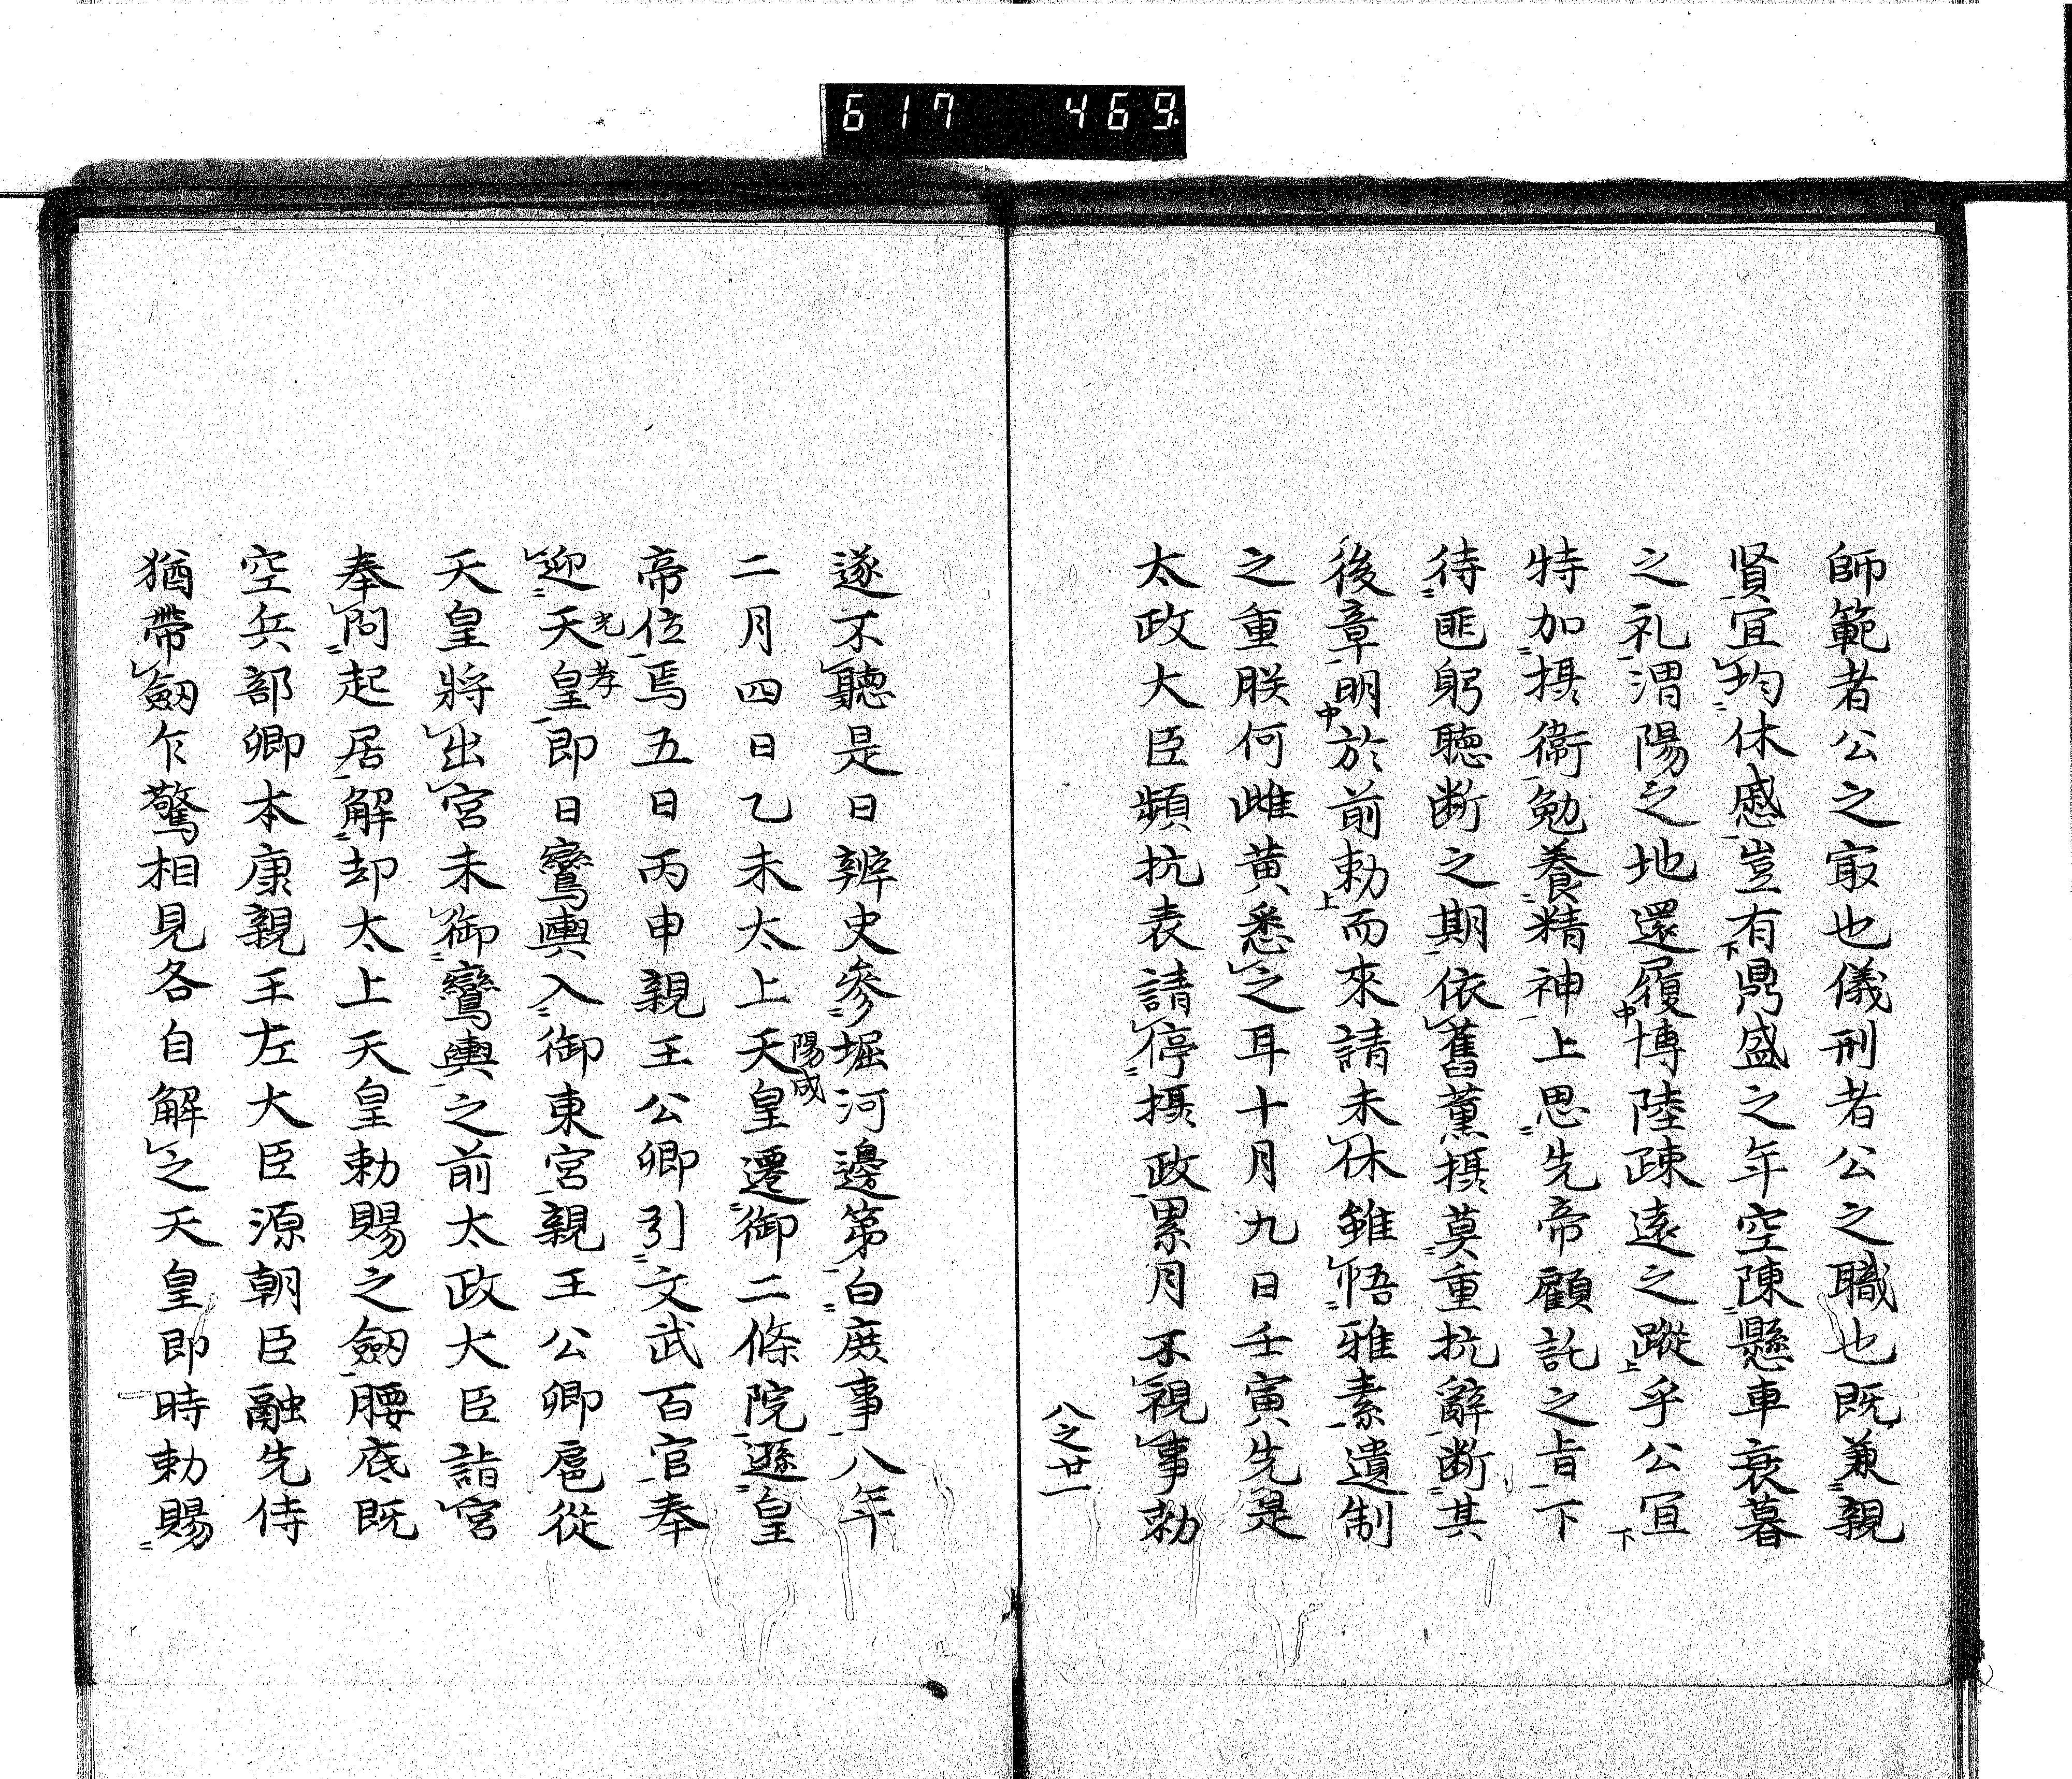 617 469
師範者公之㝡也儀刑者公之職也既兼親
賢宜均休慼豈有鼎盛之年空陳懸車衰暮
之礼渭陽之地還履博陸疎遠之蹤乎公宜
特加摂衞勉養精神上思先帝顧託之旨下
待匪躬聴断之期依舊薫摂莫重抗辭断其
後章明於前勅而來請未休雖悟雅素遺制
之重朕何雌黄悉之耳十月九日壬寅先是
太政大臣頻抗表請停摂政累月不視事勅
八之廿一
遂不聽是日辨史參堀河邊第白庶事八年
二月四日乙未太上天皇遷御二條院遜皇
陽成
帝位焉五日丙申親王公卿引文武百官奉
迎天皇即日鸞輿入御東宮親王公卿扈從
光孝
天皇將出宮未御鸞輿之前太政大臣詣宮
奉問起居解却太上天皇勅賜之劔腰底既
空兵部卿本康親王左大臣源朝臣融先侍
猶帶劔乍驚相見各自解之天皇即時勅賜